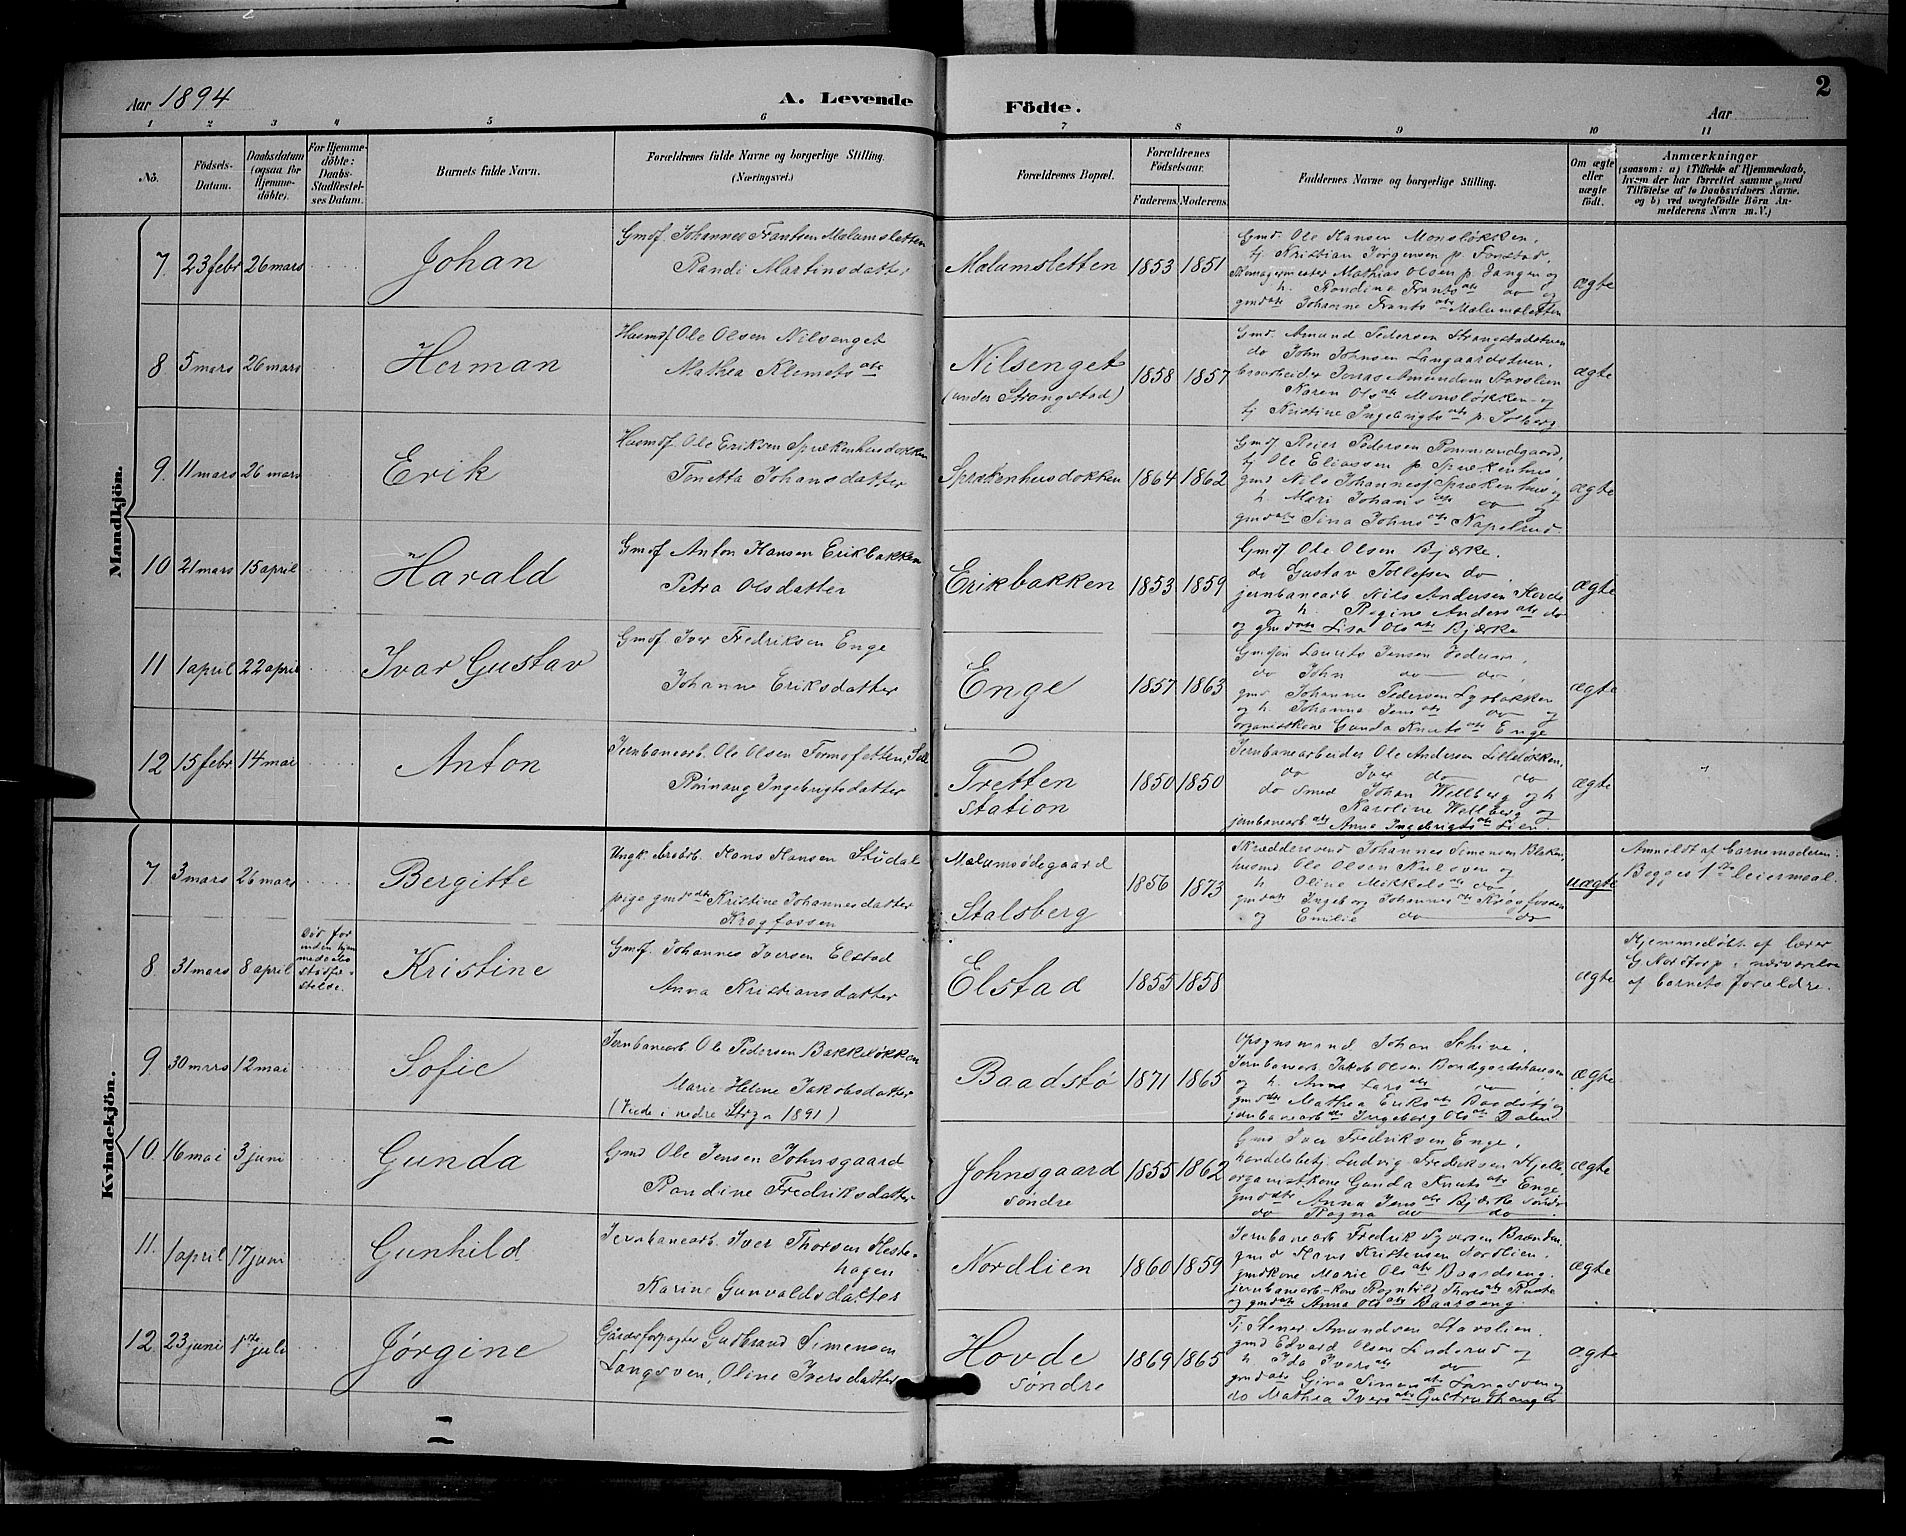 Aar 1894
A. Levende
Födte.
Aar
2
1 2 3 4 5 6 7 8 9 10 11
No.
Födsels-Datum.
Daabsdatum (ogsaa for Hjemmedöbte).
For Hjemmedöbte: Daabs-Stadfæstelses Datum.
Barnets fulde Navn.
Forældrenes fulde Navne og borgerlige Stilling. (Næringsvei.)
Forældrenes Bopæl.
Forældrenes Födselsaar.
Faderens. Moderens.
Faddernes Navne og borgerlige Stilling.
Om ægte eller uægte födt.
Anmærkninger
(saasom: a) i Tilfælde af Hjemmedaab, hvem der har forrettet samme, med Tilföielse af to Daabsvidners Navne, og b) ved uægtefödte Börn Anmelderens Navn m. V.)
Mandkjön.
7 23 febr 26 mars Johan
Gmdf. Johannes Frantsen Mælumsletten
Randi Martinsdatter
Mælumsletten 1853 1851
Gmd. Ole Hansen Monsløkken,
tj. Kristian Jørgensen p. Fonstad,
Mathias Olsen p. Jangen og
h. Randine Frants dtr do og
gmdtr Johanne Frants dtr Mælumsletten
ægte
8 5 mars 26 mars Herman
Husmdf Ole Olsen Nilsenget
Mathea Klemets dtr
Nilsenget
(under Strangstad)
1858 1857
Gmd. Amund Pedersen Strangstadstuen
do John Johnsen Langaardstuen,
Jonas Amundsen Stavslien
Karen Ols dtr Monsløkken og
tj Kristine Ingebrigts dtr p. Solberg
ægte
9. 11 mars 26 mars Erik
Husmdf. Ole Eriksen Sprækenhusdokken
Tonetta Johansdatter
Sprækenhusdokken 1864 1862
Gmdf Reier Pedersen Rommundgaard,
tj Ole Eliassen p Sprækenhus
gmd Nils Johannes Sprækenhus og
h. Mari Johans dtr do og
gmdtr Sina Johns dtr Kapelrud
ægte
10 21 mars 15 april Harald
Gmdf Anton Hansen Erikbakken
Petra Olsdatter
Erikbakken 1853 1859
Gmdf Ole Olsen Bjerke.
do Gustav Tollefsen do
jernbanearb Nils Andersen
og h. Regine Anders dtr do
og gmdtr Lisa Ols dtr Bjerke
ægte
11 1 april 22 april Ivar Gustav
Gmdf. Iver Fredriksen Enge
Johanne Eriksdatter
Enge 1857 1863
Laurits Jensen
do John do do,
gmd. Johannes Pedersen Lysbakken
og h. Johanne Jens dtr do og
organistkone Gunda Knuts dtr Enge
ægte
12 15 febr 14 mai Anton
Jernbanearb. Ole Olsen
Rønnaug Ingebrigtsdatter
Tretten station
1850 1850
Jernbanearbeider Ole Andersen Lilleløkken,
do Iver do do
do smed Johan Wellberg og h
Karoline Wellberg og
jernbanearb dtr Anne Ingebrigts dtr Lien
ægte
Kvindekjön.
7 3 mars 26 mars Bergitte
Ungk. Hans Hansen Studal
pige gmd dtr Kristine Johannesdatter
Krogfossen
Mælumsødegaard
Stalsberg
1856 1873
Skræddersvend Johannes Simensen
husmd Ole Olsen og
h Oline Mikkels dtr do,
gmdtr Ingeborg Johannes dtr Krogfossen
og Emilie do do
uægte
Anmeldt af barnemoderen.
Begges 1ste leiermaal.
8 31 mars 8 april
Død for inden hjemmedaabs stadfæstelse.
Kristine
Gmdf. Johannes Iversen Elstad
Anna Kristiansdatter
Elstad 1855 1858
ægte
Hjemmedøbt af lærer
G. Nordtorp i nærværelse
af barnets forældre.
9 30 mars 12 mai Sofie
Jernbanearb Ole Pedersen Bakkeløkken
Marie Helene Jakobsdatter
(Viede i nedre 1891)
Baadstø 1871 1865
Opsynsmand Johan Schive.
Jernbanearb. Jakob Olsen
og h. Anna Lars dtr do
gmdtr Mathea Eriks dtr Baadstø og
jernbanearb dtr Ingeborg Ols dtr Dalen
ægte
10. 16 mai 3 juni Gunda
Gmd Ole Jensen Johnsgaard
Randine Fredriksdatter
Johnsgaard søndre
1855 1862
Gmd Iver Fredriksen Enge,
handelsbetj. Ludvig Fredriksen
organistkone Gunda Knuts dtr Enge
gmdtr Anna Jens dtr Bjerke søndr
do Ragna do do.
ægte
11. 1 april 17 juni Gunhild
Jernbanearb. Iver Thorsen Hestehagen
Karine Gunvaldsdatter
Nordlien 1860 1859
Jernbanearb Fredrik Syversen Brænden
gmd Hans Kristensen Nordlien.
gmdkone Marie Ols dtr Baardseng.
jernbanearb-kone Ragnhild Thors dtr
og gmdtr Anna Ols dtr Baardseng.
ægte
12. 23 juni 1ste juli Jørgine
Gårdsforpagter Gudbrand Simensen
Langsven, Oline Iversdatter
Hovde søndre
1869 1865
Tj. Stener Amundsen Stavslien.
gmd Edvard Olsen Linderud og
h Ida Ivers dtr do
gmdtr Gina Simens dtr Langsven og
do Mathea Ivers dtr
ægte